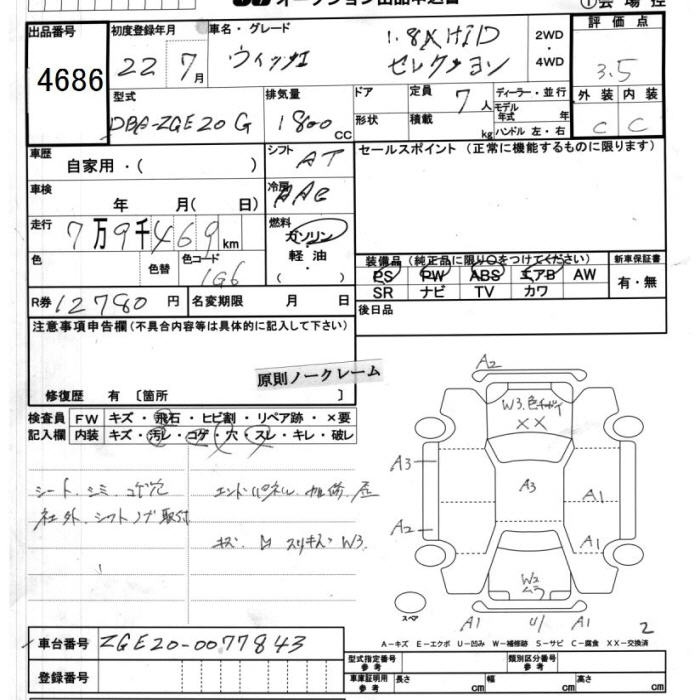 オークション出品申込書
① 会場控
出品番号
4686
初度登録年月
22 7月
車名・グレード
ウィッシュ
1.8X HID
セレクション
2WD
・
4WD
評価点
3.5
外装 内装
C C
型式
DBA-ZGE20G
排気量
1800 CC
ドア
形状
定員 7人
積載 kg
ディーラー・並行
モデル年式 年
ハンドル 左・右
車歴
自家用・( )
シフト AT
セールスポイント (正常に機能するものに限ります)
車検 年 月( 日)
冷房 AAC
走行 7万9千469 km
燃料
ガソリン
軽油
・( )
色 色替 色コード 1G6
装備品 (純正品に限り○をつけてください)
PS PW ABS エアB AW
SR ナビ TV カワ
新車保証書
有・無
R券 12780 円
名変期限 月 日
後日品
注意事項申告欄 (不具合内容等は具体的に記入して下さい)
原則ノークレーム
修復歴 有 〔箇所 〕
検査員 FW キズ・飛石・ヒビ割・リペア跡・×要
記入欄 内装 キズ・汚レ・コゲ・穴・スレ・キレ・破レ
シート、シミ、コゲ穴
社外、シフトノブ取付
エンドパネル
キズ スリキズ W3.
A2
W3.色チガイ
××
A3
A3
A1
A2
A1
W2
ムラ
スペア
A1 U1 A1
2
A-キズ E-エクボ U-凹み W-補修跡 S-サビ C-腐食 XX-交換済
車台番号 ZGE20-0077843
登録番号
型式指定番号
参考
類別区分番号
参考
車庫証明用
参考
長さ cm 幅 cm 高さ cm